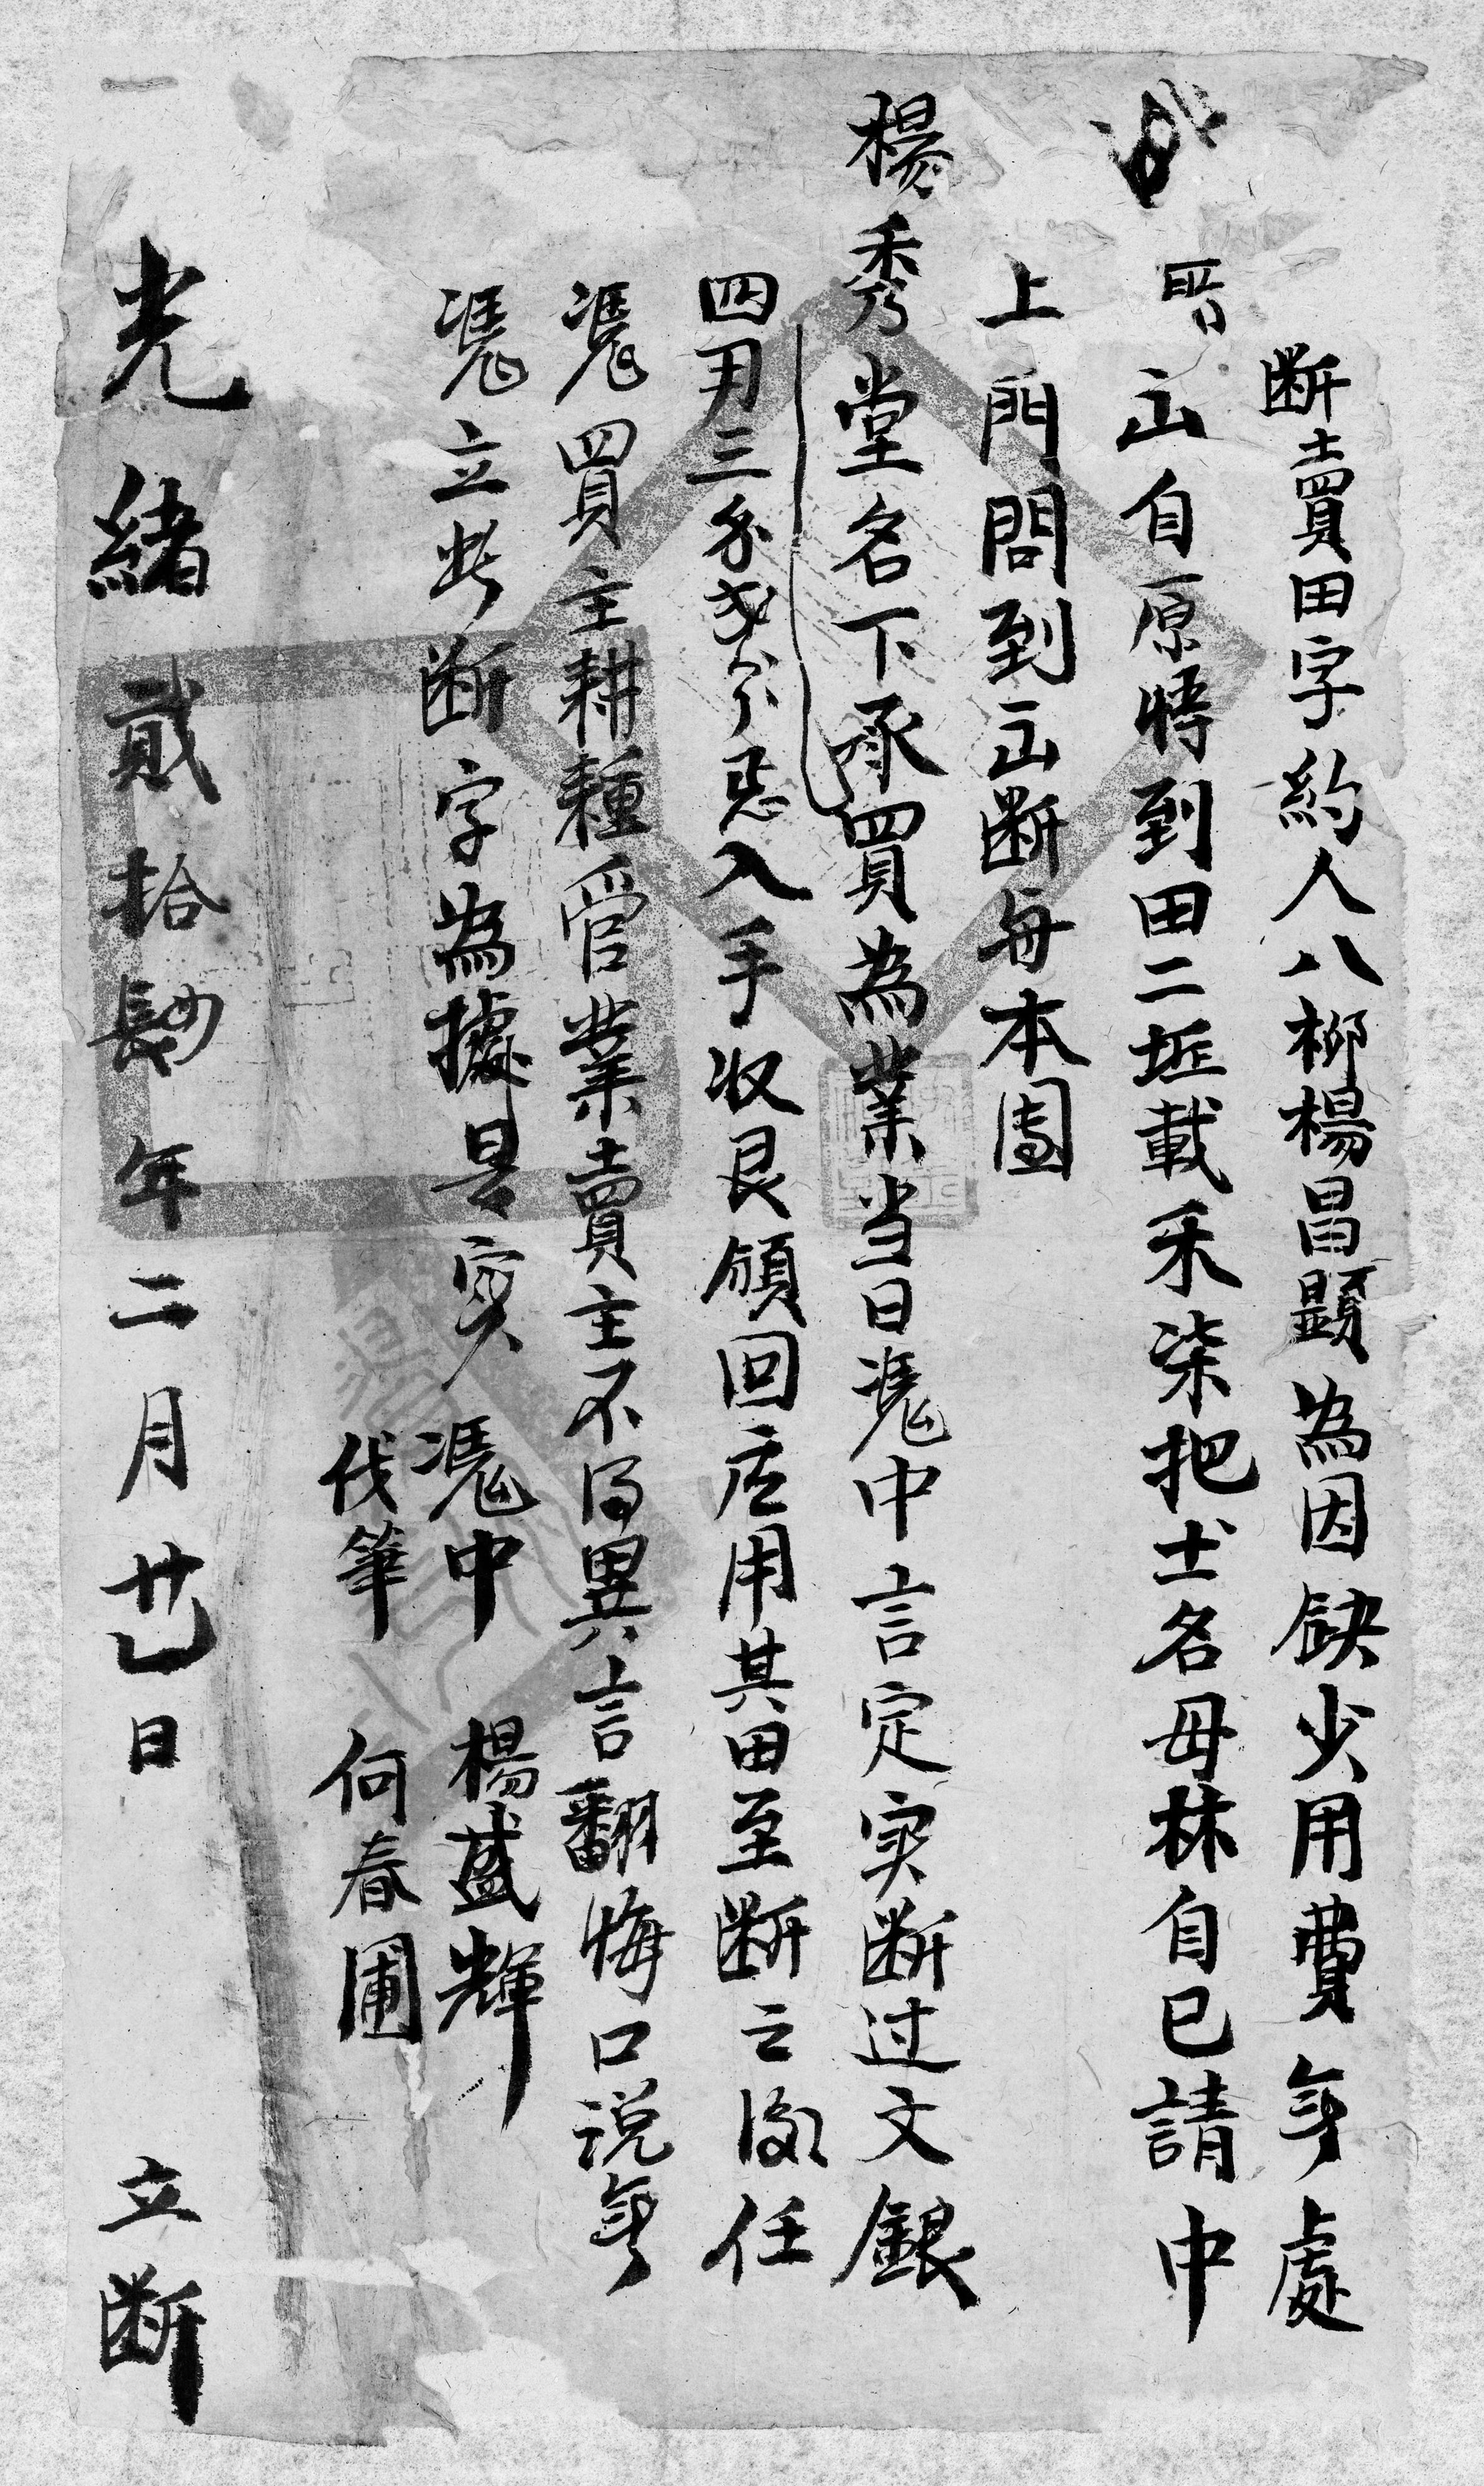 断賣田字約人八柳楊昌顕為因缺少用費無處
出自原將到田二坵載禾柒把土名毋林自己請中
上門問到立断与本團
楊秀堂名下承買為業当日憑中言定实断过文銀
四刄三分入手收艮領回应用其田至断之後任
憑買主耕種管業賣主不得異言翻悔口说無
憑立此断字為據是实
憑中 楊盛輝
伐筆 何春圃
光緒貳拾肆年二月廿九日 立断